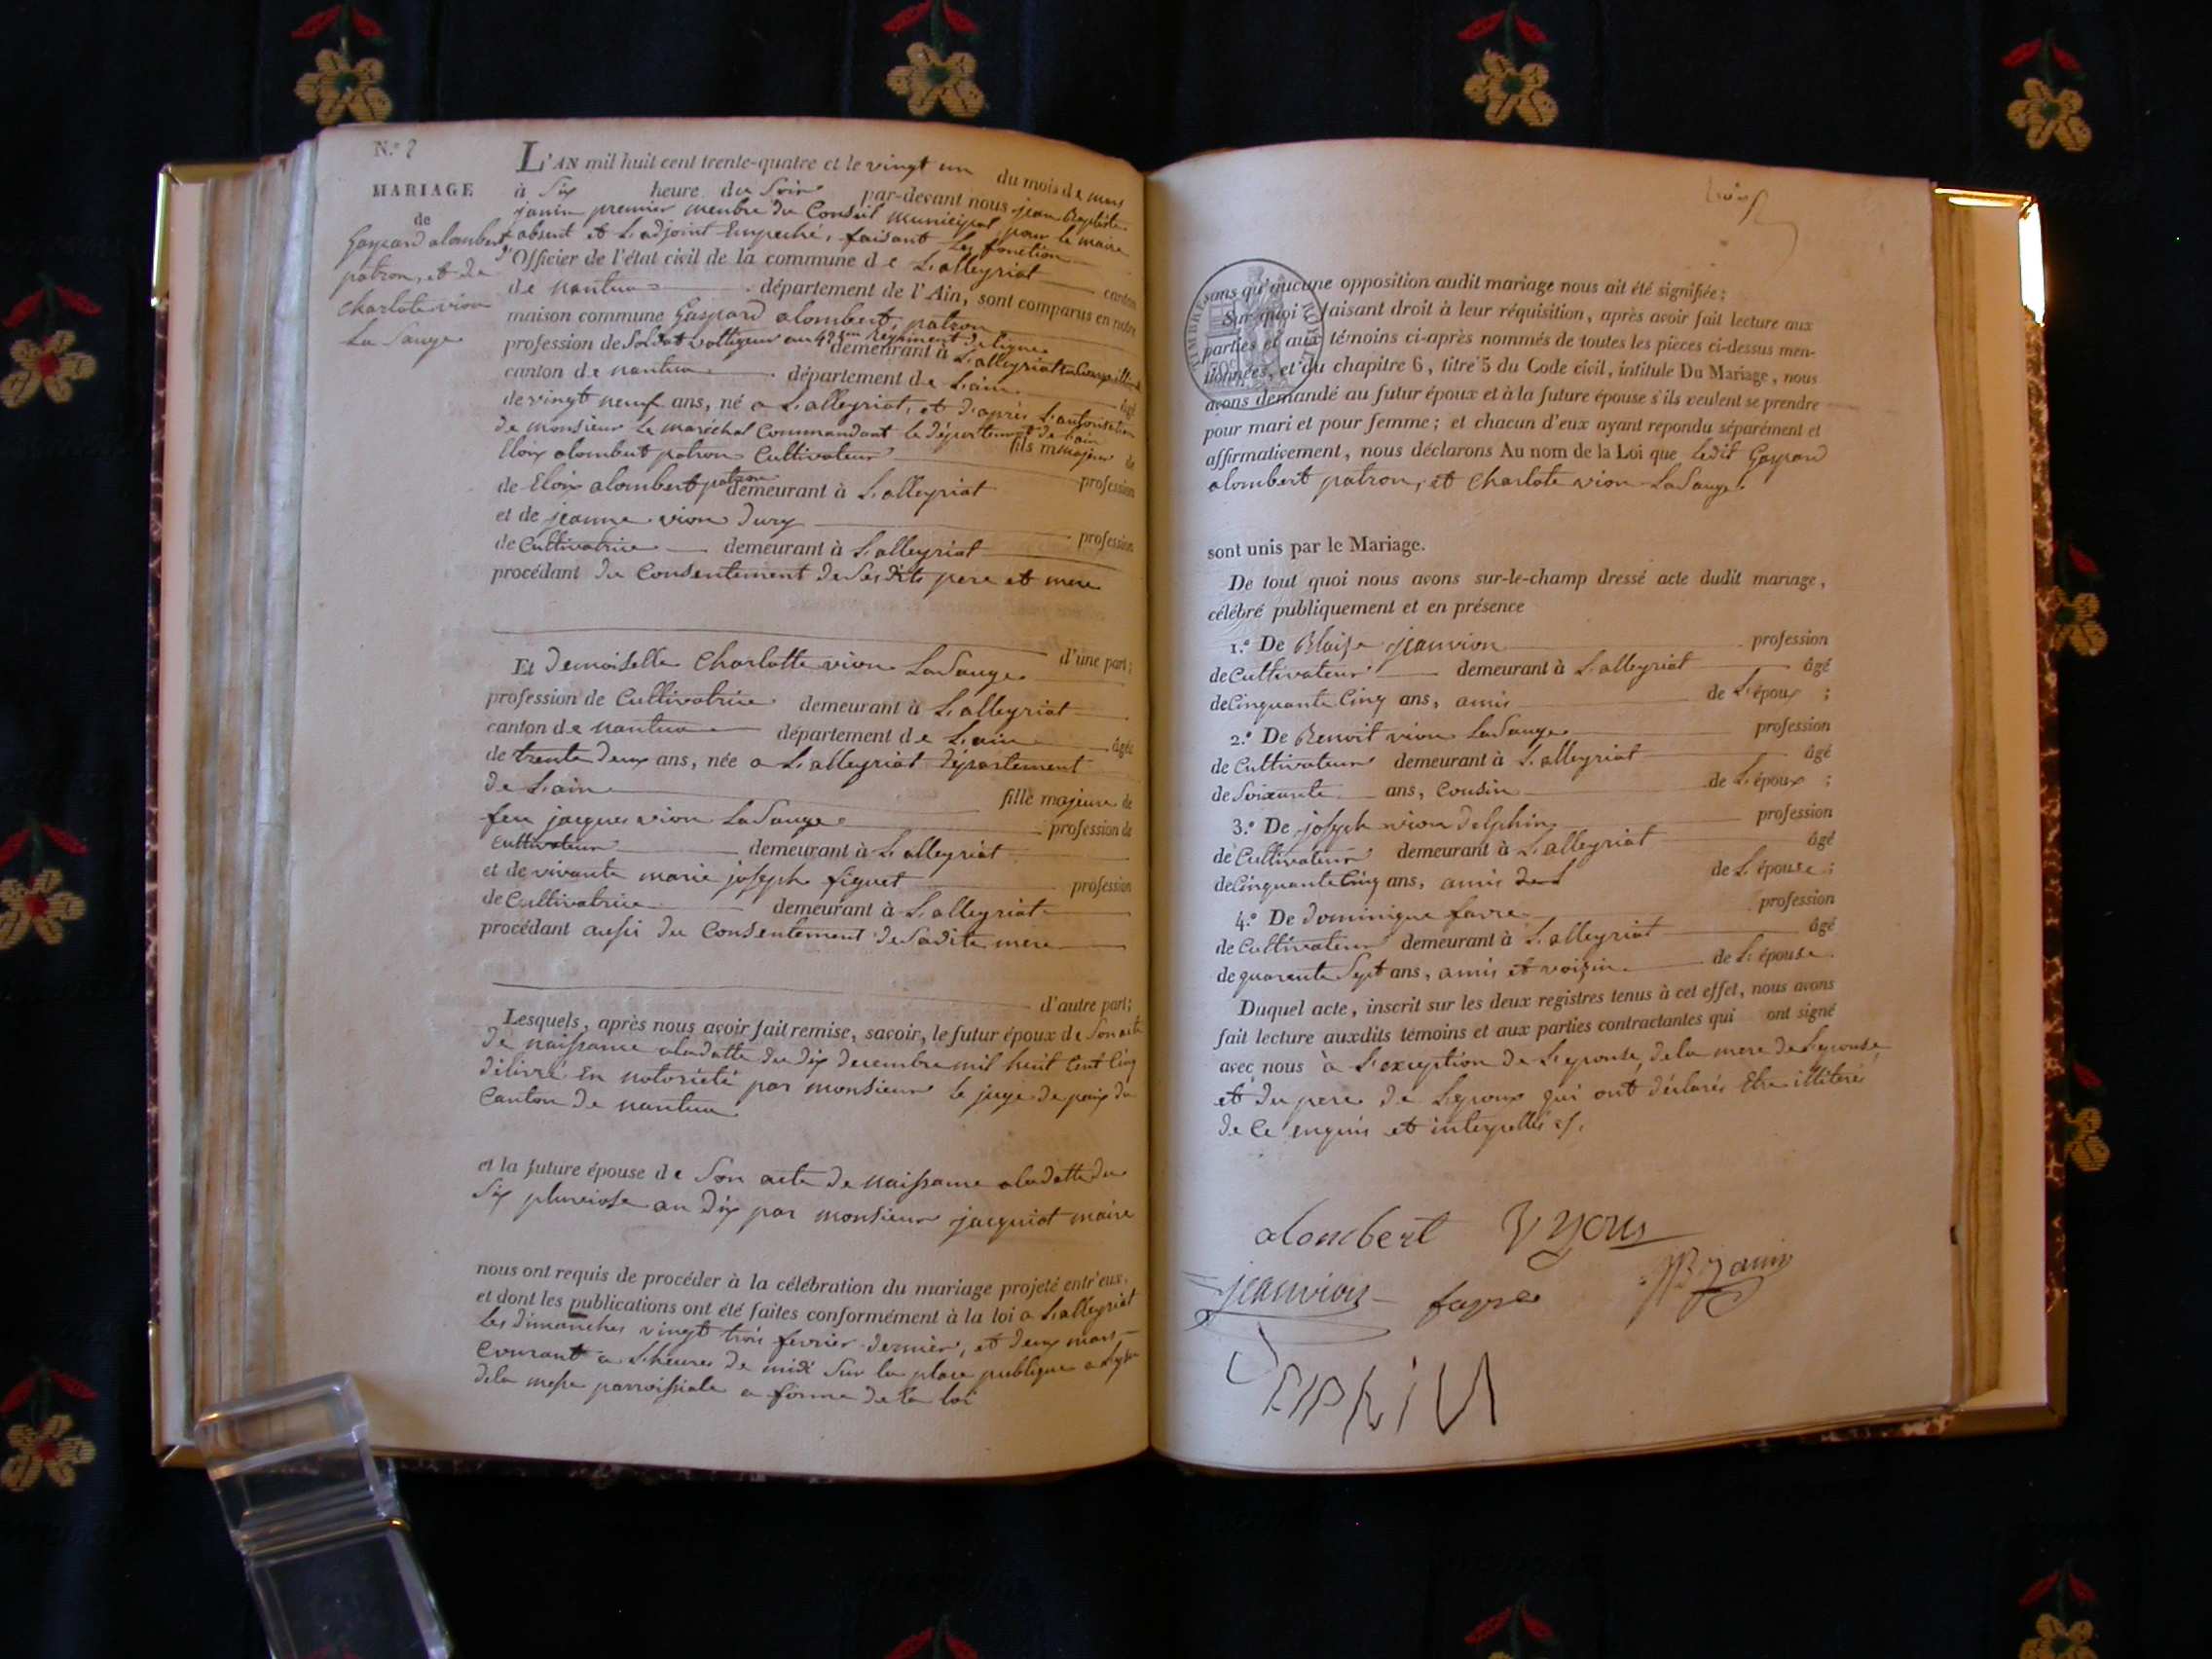 N.º 2
MARIAGE
de
Gaspard alombert
patron, et de
charlote vion
La Sauge
L'AN mil huit cent trente-quatre et le vingt un du mois de mars
à Six heure du Soir par-devant nous jean Baptiste
janin premier membre du Conseil municipal pour le maire
absent et L'adjoint Empeché, faisant les fonction
d'Officier de l'état civil de la commune de L'alleyriat canton
de nantua département de l'Ain, sont comparus en notre
maison commune Gaspard alombert, patron
profession de Soldat voltigeur au Régiment de ligne
demeurant à L'alleyriat
canton de nantua département de L'ain âgé
de vingt neuf ans, né a L'alleyriat, et d'après L'autorisation
de monsieur Le maréchal Commandant le département de L'ain
fils majeur de
Eloix alombert patron Cultivateur profession
de Eloix alombert patron demeurant à L'alleyriat
et de jeanne vion Dury profession
de Cultivatrice demeurant à L'alleyriat
procédant du Consentement de Sesdits pere et mere
d'une part;
Et Demoiselle Charlotte vion LaSauge
profession de Cultivatrice demeurant à L'alleyriat
canton de nantua département de L'ain âgée
de trente deux ans, née a L'alleyriat département
de L'ain fille majeure de
feu jacques vion LaSauge profession de
Cultivateur demeurant à L'alleyriat
et de vivante marie joseph figuet profession
de Cultivatrice demeurant à L'alleyriat
procédant aussi du Consentement de Sadite mere
d'autre part;
Lesquels, après nous avoir fait remise, savoir, le futur époux de Son acte
de naissance aladatte du dix decembre mil huit Cent Cinq
délivré En notoriété par monsieur le juge de paix du
Canton de nantua
et la future épouse de Son acte de naissance aladatte du
Six pluviose an Dix par monsieur jacquiot maire
nous ont requis de procéder à la célébration du mariage projeté entr'eux,
et dont les publications ont été faites conformément à la loi a L'alleyriat
Les dimanches vingt trois fevrier dernier, et deux mars
Courant a L'heure de midi Sur la place publique
dela messe parroissiale a forme de la loi
TIMBRE ROYAL
sans qu'aucune opposition audit mariage nous ait été signifiée;
Sur quoi faisant droit à leur réquisition, après avoir fait lecture aux
parties et aux témoins ci-après nommés de toutes les pièces ci-dessus men-
tionnées, et du chapitre 6, titre 5 du Code civil, intitule Du Mariage, nous
avons demandé au futur époux et à la future épouse s'ils veulent se prendre
pour mari et pour femme; et chacun d'eux ayant repondu séparément et
affirmativement, nous déclarons Au nom de la Loi que Ledit Gaspard
alombert patron, et Charlote vion LaSauge
sont unis par le Mariage.
De tout quoi nous avons sur-le-champ dressé acte dudit mariage,
célébré publiquement et en présence
1.º De Blaise jeanvion profession
de Cultivateur demeurant à L'alleyriat âgé
de Cinquante Cinq ans, amis de L'époux ;
2.º De Benoit vion LaSauge profession
de Cultivateur demeurant à L'alleyriat âgé
de Soixante ans, Cousin de L'époux ;
3.º De joseph vion delphin profession
de Cultivateur demeurant à L'alleyriat âgé
de Cinquante Cinq ans, amis de L'épouse ;
4.º De dominique favre profession
de Cultivateur demeurant à L'alleyriat âgé
de quarente Sept ans, amis et voisin de L'épouse.
Duquel acte, inscrit sur les deux registres tenus à cet effet, nous avons
fait lecture auxdits témoins et aux parties contractantes qui ont signé
avec nous à L'exception de L'epouse, dela mere de L'epouse,
et du pere de L'epoux qui ont déclarés Etre illiterés
de Ce enquis et interpellés
alombert
jeanvion favre JB Janin